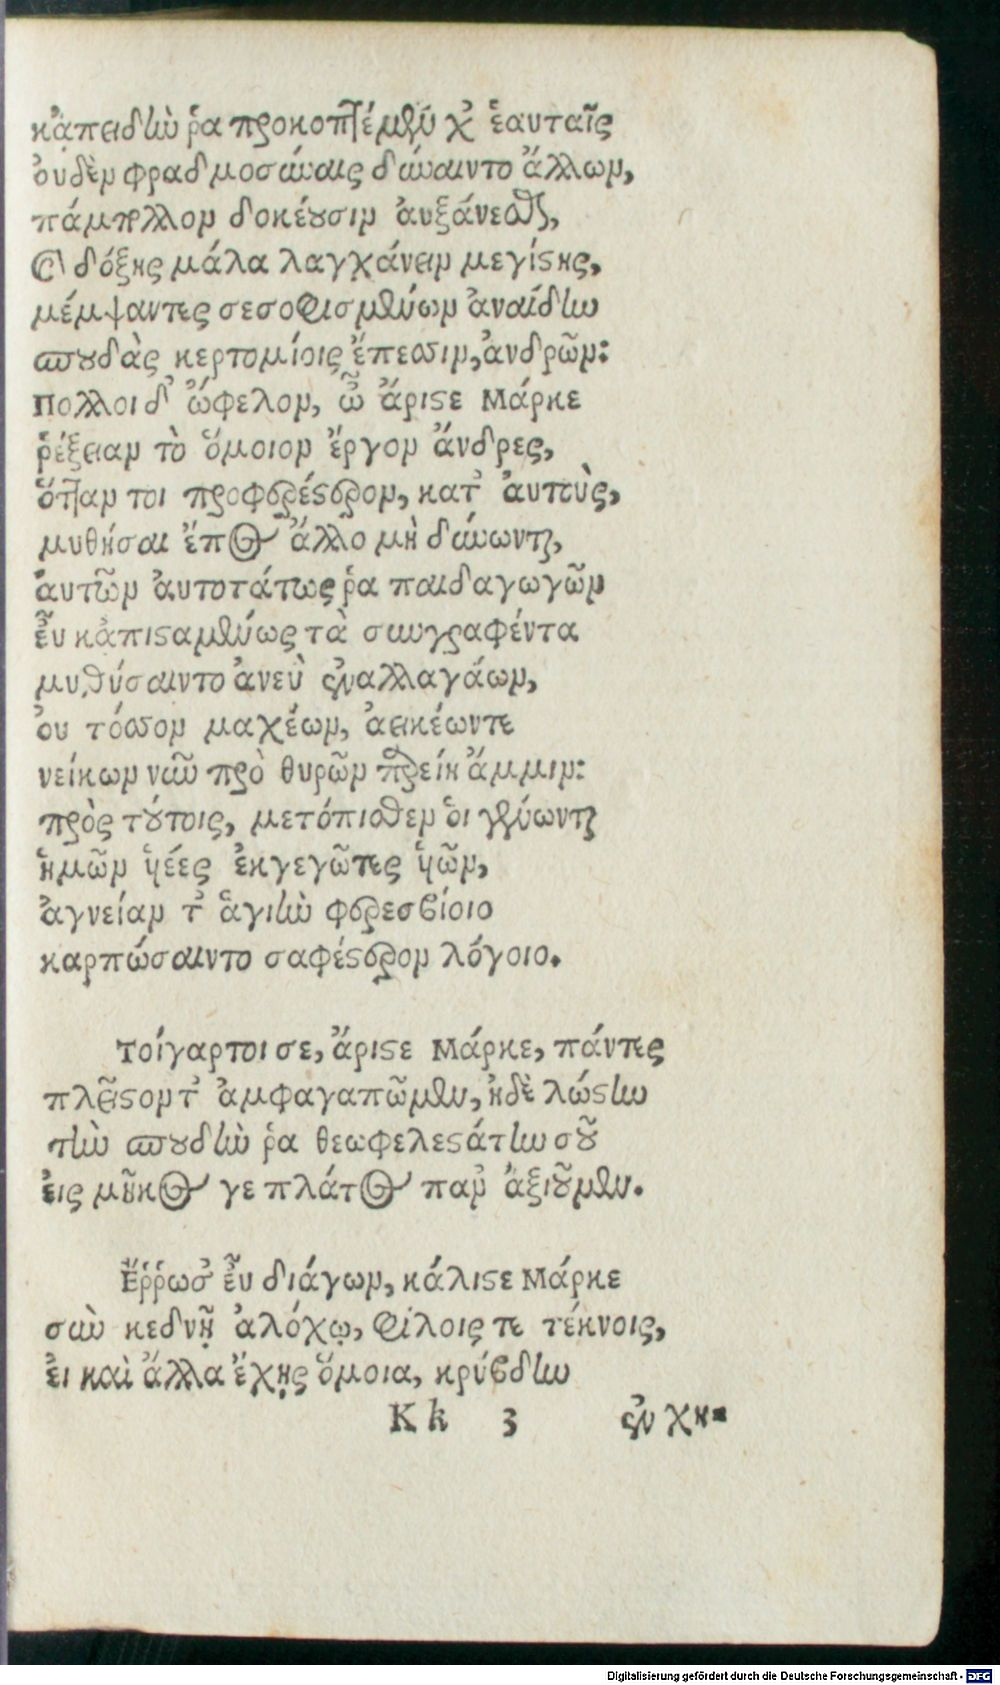 κἀπειδὴν ῥα προκοπτέμεν κ' ἑαυταῖς
οὐδὲν φραδμοσύναις δύναιντο ἄλλων,
πάμπολλον δοκέουσιν αὐξάνεσθαι,
καὶ δόξης μάλα λαγχάνειν μεγίστης,
μέμψαντες σεσοφισμένων ἀναίδην
σπουδὰς κερτομίοις ἔπεσσιν, ἀνδρῶν:
Πολλοὶ δ' ὤφελον, ὦ ἄριστε Μάρκε
ῥέξειαν τὸ ὅμοιον ἔργον ἄνδρες,
ὅτταν τοι προφερέστερον, κατ' αὐτοὺς,
μυθῆσαι ἔπος ἄλλο μὴ δύνωνται,
αὐτῶν αὐτοτάτως ῥα παιδαγωγῶν
εὖ κἀπισταμένως τὰ συγγραφέντα
μυθύσαιντο ἀνεὺ ἐναλλαγάων,
οὐ τόσσον μαχέων, ἀεικέωντε
νείκων νῦν πρὸ θυρῶν παρείη ἄμμιν:
πρὸς τούτοις, μετόπισθεν οἱ γένωνται
ἡμῶν υἱέες ἐκγεγῶτες υἱῶν,
ἁγνείαν τ' ἁγιὴν φερεσβίοιο
καρπώσαιντο σαφέστερον λόγοιο.
Τοίγαρτοι σε, ἄριστε Μάρκε, πάντες
πλεῖστον τ' ἀμφαγαπῶμεν, ἠδὲ λώστην
τὴν σπουδὴν ῥα θεωφελεστάτην σοῦ
εἰς μῆκος γε πλάτος παρ' ἀξιοῦμεν.
Ἔῤῥωσ' εὖ διάγων, κάλιστε Μάρκε
σὺν κεδνῇ ἀλόχῳ, φίλοις τε τέκνοις,
εἰ καὶ ἄλλα ἔχῃς ὅμοια, κρύβδην
Kk 3 ἐν χη-
Digitalisierung gefördert durch die Deutsche Forschungsgemeinschaft - DFG